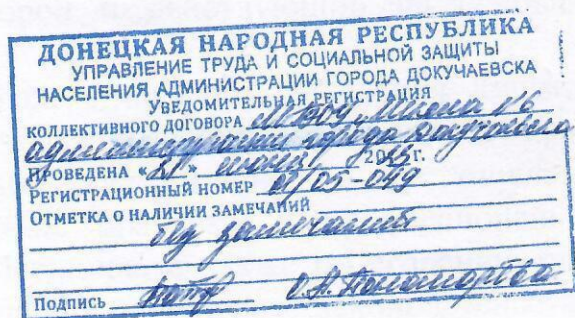 ДОНЕЦКАЯ НАРОДНАЯ РЕСПУБЛИКА
УПРАВЛЕНИЕ ТРУДА И СОЦИАЛЬНОЙ ЗАЩИТЫ
НАСЕЛЕНИЯ АДМИНИСТРАЦИИ ГОРОДА ДОКУЧАЕВСКА
УВЕДОМИТЕЛЬНАЯ РЕГИСТРАЦИЯ
КОЛЛЕКТИВНОГО ДОГОВОРА МБОУ "Школа №6
администрации города Докучаевска
ПРОВЕДЕНА «21» г.
РЕГИСТРАЦИОННЫЙ НОМЕР 01/05-049
ОТМЕТКА О НАЛИЧИИ ЗАМЕЧАНИЙ
без замечаний
ПОДПИСЬ О.Н. Пономарёва